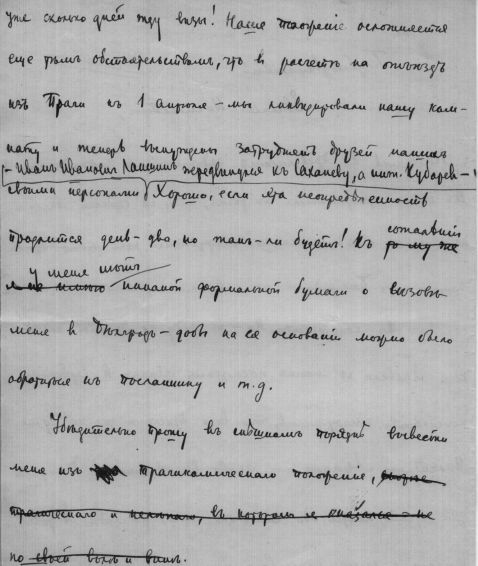 уже сколько дней жду визы! Наше положеніе осложняется
еще тѣмъ обстоятельствомъ, что въ расчетѣ на отъѣздъ
изъ Праги къ 1 апрѣля – мы ликвидировали нашу ком-
нату и теперь вынуждены затруднять друзей нашихъ
– Иванъ Ивановичъ Лапшинъ передвинулся къ Саханеву, а инж. Кубарев –
своими персонами. Хорошо, если эта неопредѣленность
продлится день-два, но такъ-ли будетъ! Къ сожалѣнію
у меня нѣтъ
никакой формальной бумаги о вызовѣ
меня в Бѣлградъ – дабы на ея основаніи можно было
обратиться къ посланнику и т.д.
Убѣдительно прошу въ спѣшномъ порядкѣ вывести
меня изъ трагикомическаго положенія,
трагическаго и нелѣпаго, въ которомъ я оказался – не
по своей волѣ и винѣ.